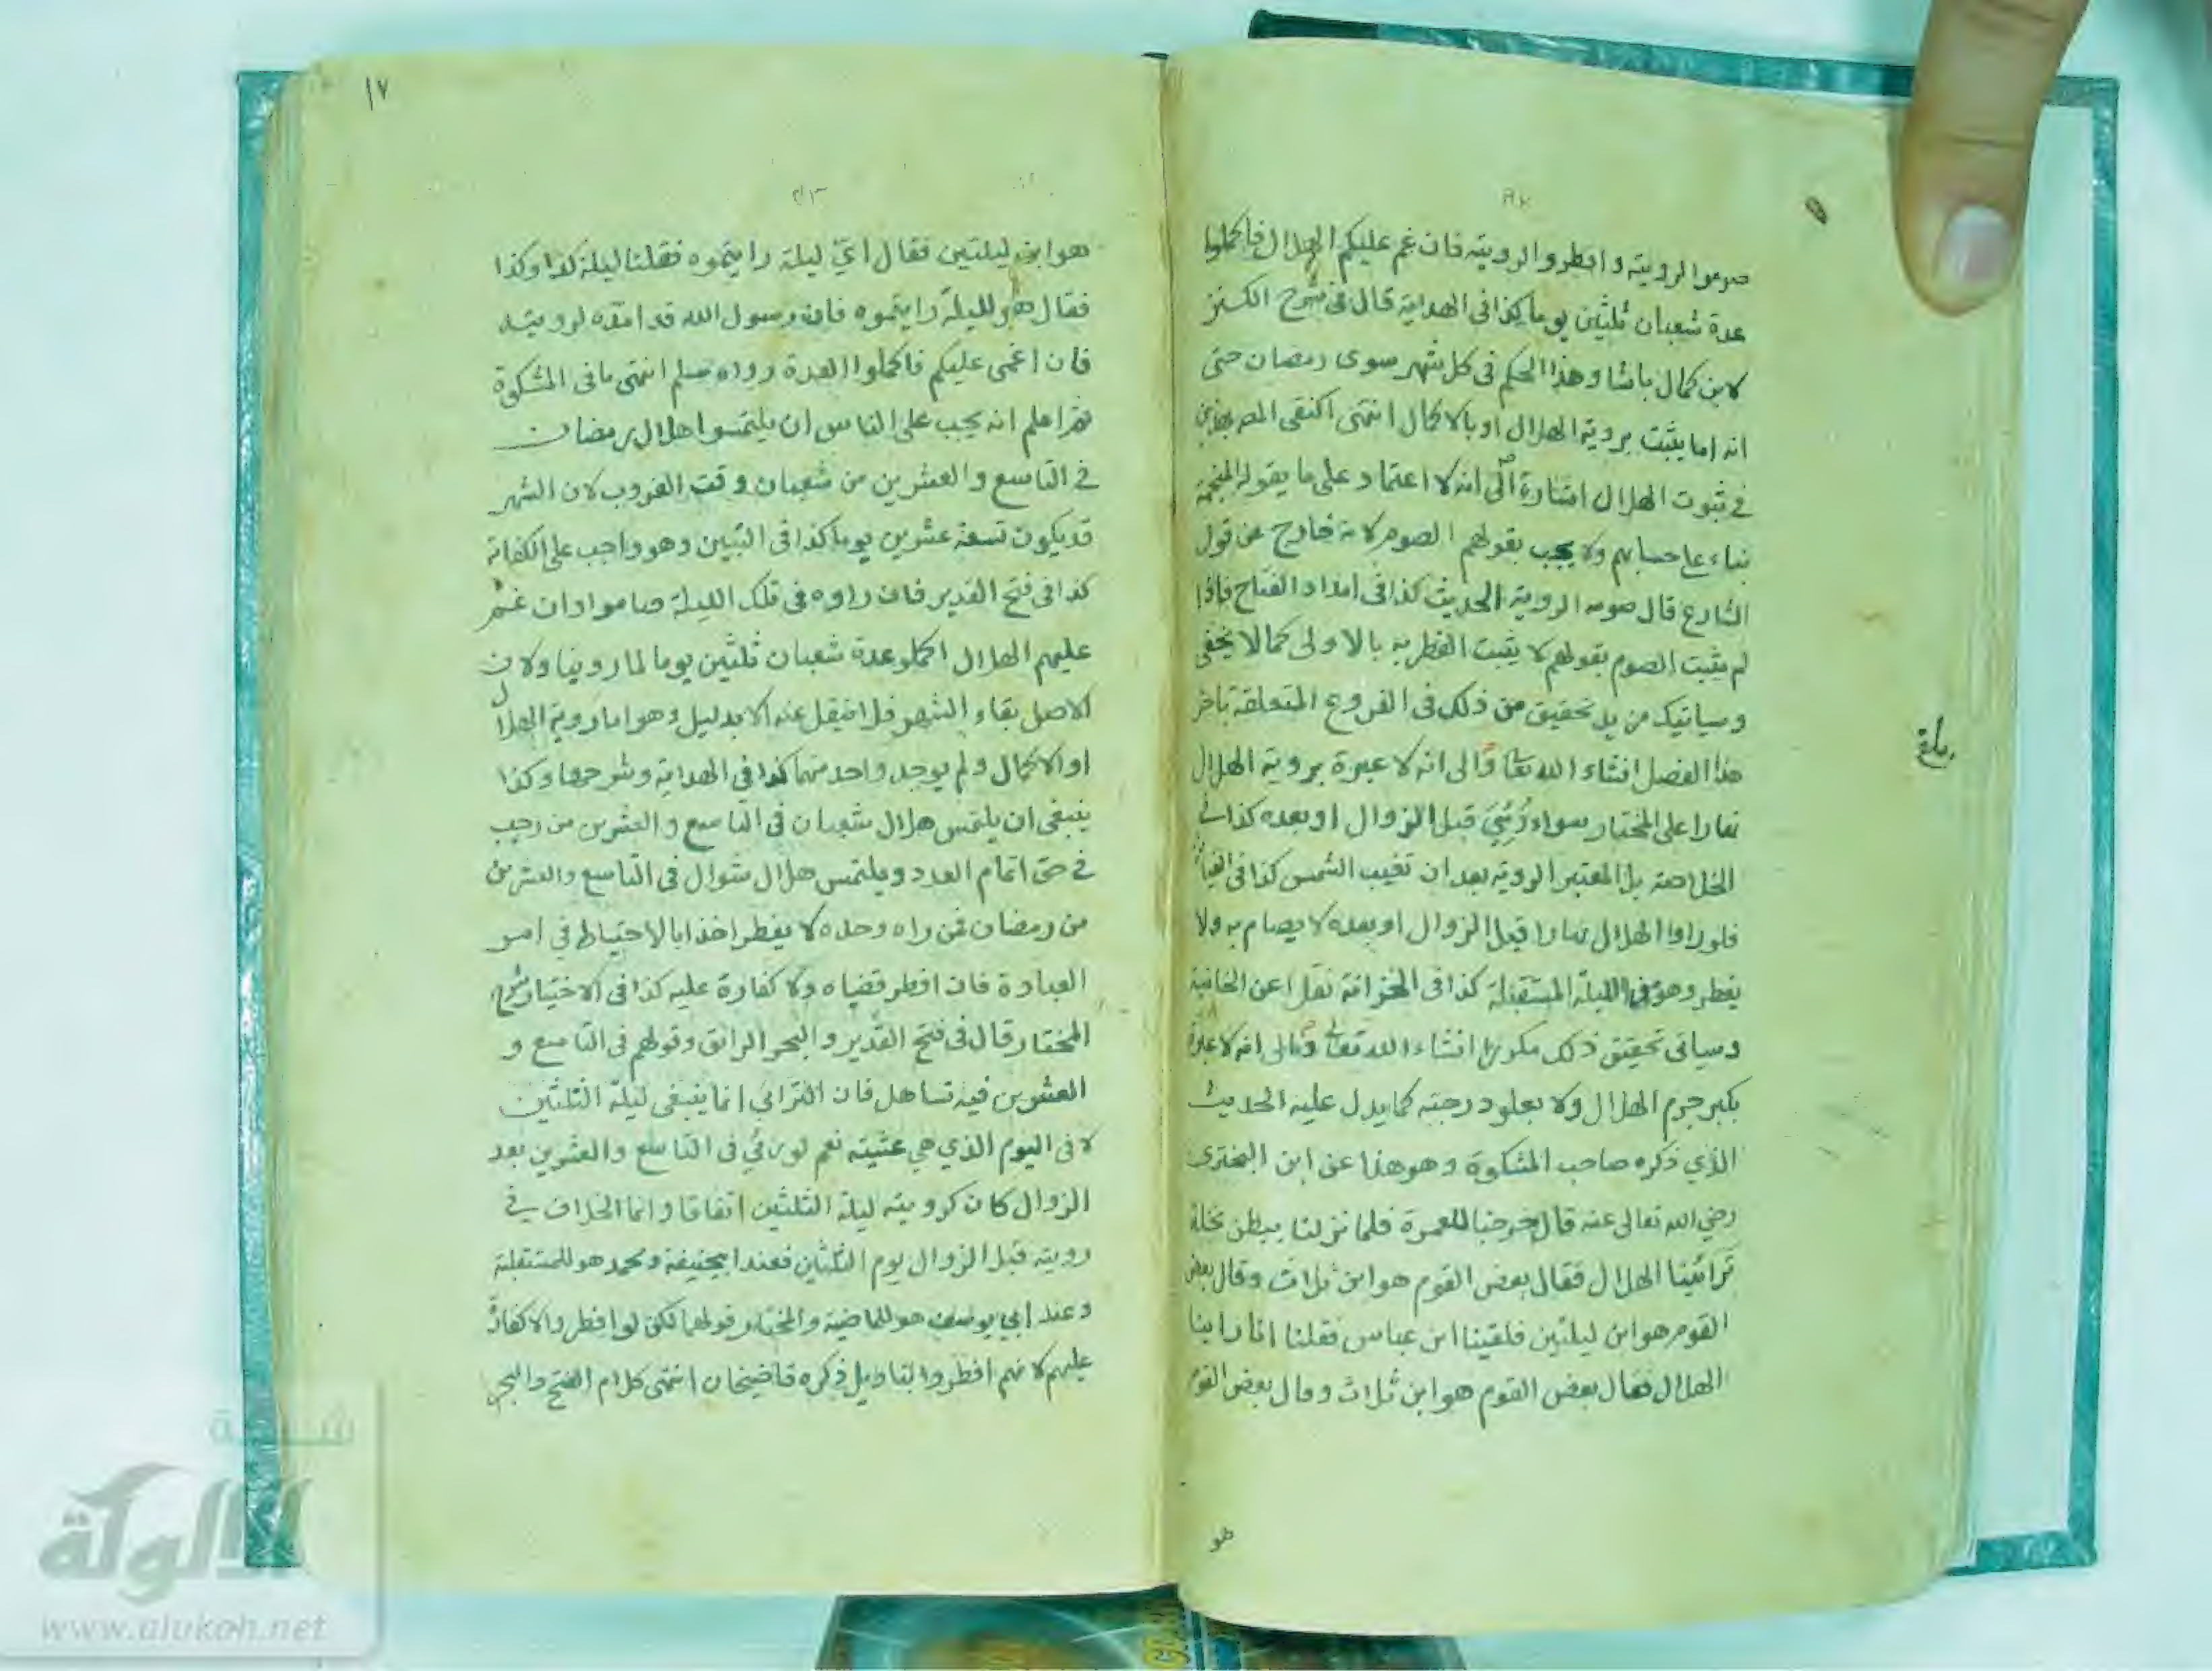 صوموا لرويته وافطروا لرويته فان غم عليكم الهلال فاكملوا
عدة شعبان ثلثين يوما كذا فى الهداية قال فى شرح الكنز
لابن كمال باشا وهذا الحكم فى كل شهر سوى رمضان حتى
انه اما يثبت بروية الهلال او بالاكمال انتهى اكتفى المص بهذين
فى ثبوت الهلال اشارة الى انه لا اعتماد على ما يقوله المنجمة
بناء على حسابهم ولا يجب بقولهم الصوم لانه خارج عن قول
الشارع قال صوموا لرويته الحديث كذا فى امداد الفتاح فاذا
لم يثبت الصوم بقولهم لا يثبت الفطر به بالاولى كما لا يخفى
وسياتيك مزيد تحقيق من ذلك فى الفروع المتعلقة باخر
هذا الفصل انشاء الله تعا والى انه لا عبرة بروية الهلال
نهارا على المختار سواء رُئِيَ قبل الزوال او بعده كذا فى
الخلاصة بل المعتبر الروية بعد ان تغيب الشمس كذا فى
فلو راوا الهلال نهارا قبل الزوال او بعده لا يصام به ولا
يفطر وهو فى الليلة المستقبلة كذا فى الخزانة نقلا عن الخانية
وسياتى تحقيق ذلك انشاء الله تعالى والى انه لا عبرة
بكبر جرم الهلال ولا بعلو درجته كما يدل عليه الحديث
الذي ذكره صاحب المشكوة وهو هذا عن ابن البخترى
رضي الله تعالى عنه قال خرجنا للعمرة فلما نزلنا ببطن نخلة
تَرائَينا الهلال فقال بعض القوم هو ابن ثلاث وقال بعض
القوم هو ابن ليلتين فلقينا ابن عباس فقلنا انا راينا
الهلال فقال بعض القوم هو ابن ثلاث وقال بعض القوم
هو
١٧
هو ابن ليلتين فقال اىّ ليلة رايتموه فقلنا ليلة كذا وكذا
فقال هو لليلة رايتموه فان رسول الله قد امدّه لرويته
فان اغمى عليكم فاكملوا العدة رواه مسلم انتهى ما فى المشكوة
ثم اعلم انه يجب على الناس ان يلتمسوا هلال رمضان
فى التاسع والعشرين من شعبان وقت الغروب لان الشهر
قد يكون تسعة عشرين يوما كذا فى التبيين وهو واجب على الكفاية
كذا فى فتح القدير فان راوه فى تلك الليلة صاموا وان غم
عليهم الهلال اكملو عدة شعبان ثلثين يوما لما روينا ولان
الاصل بقاء الشهر فلا ينقل عنه الا بدليل وهو اما روية الهلال
او الاكمال ولم يوجد واحد منهما كذا فى الهداية وشرحها وكذا
ينبغى ان يلتمس هلال شعبان فى التاسع والعشرين من رجب
فى حق اتمام العدد ويلتمس هلال شوال فى التاسع والعشرين
من رمضان فمن راه وحده لا يفطر اخذا بالاحتياط فى امر
العبادة فان افطر قضاه ولا كفارة عليه كذا فى الاختيار شرح
المختار قال فى فتح القدير والبحر الرائق وقولهم فى التاسع و
العشرين فيه تساهل فان الترائي انما ينبغى ليلة الثلثين
لا فى اليوم الذي هي عشيته نعم لو رئي فى التاسع والعشرين بعد
الزوال كان كرويته ليلة الثلثين اتفاقا وانما الخلاف في
رويته قبل الزوال يوم الثلثين فعند ابيحنيفة ومحمد هو للمستقبلة
وعند ابي يوسف هو للماضية والمختار قولهما لكن لو افطروا لا كفارة
عليهم لانهم افطروا بتاويل ذكره قاضيخان انتهى كلام الفتح والبحر
شبكة
الألوكة
www.alukah.net